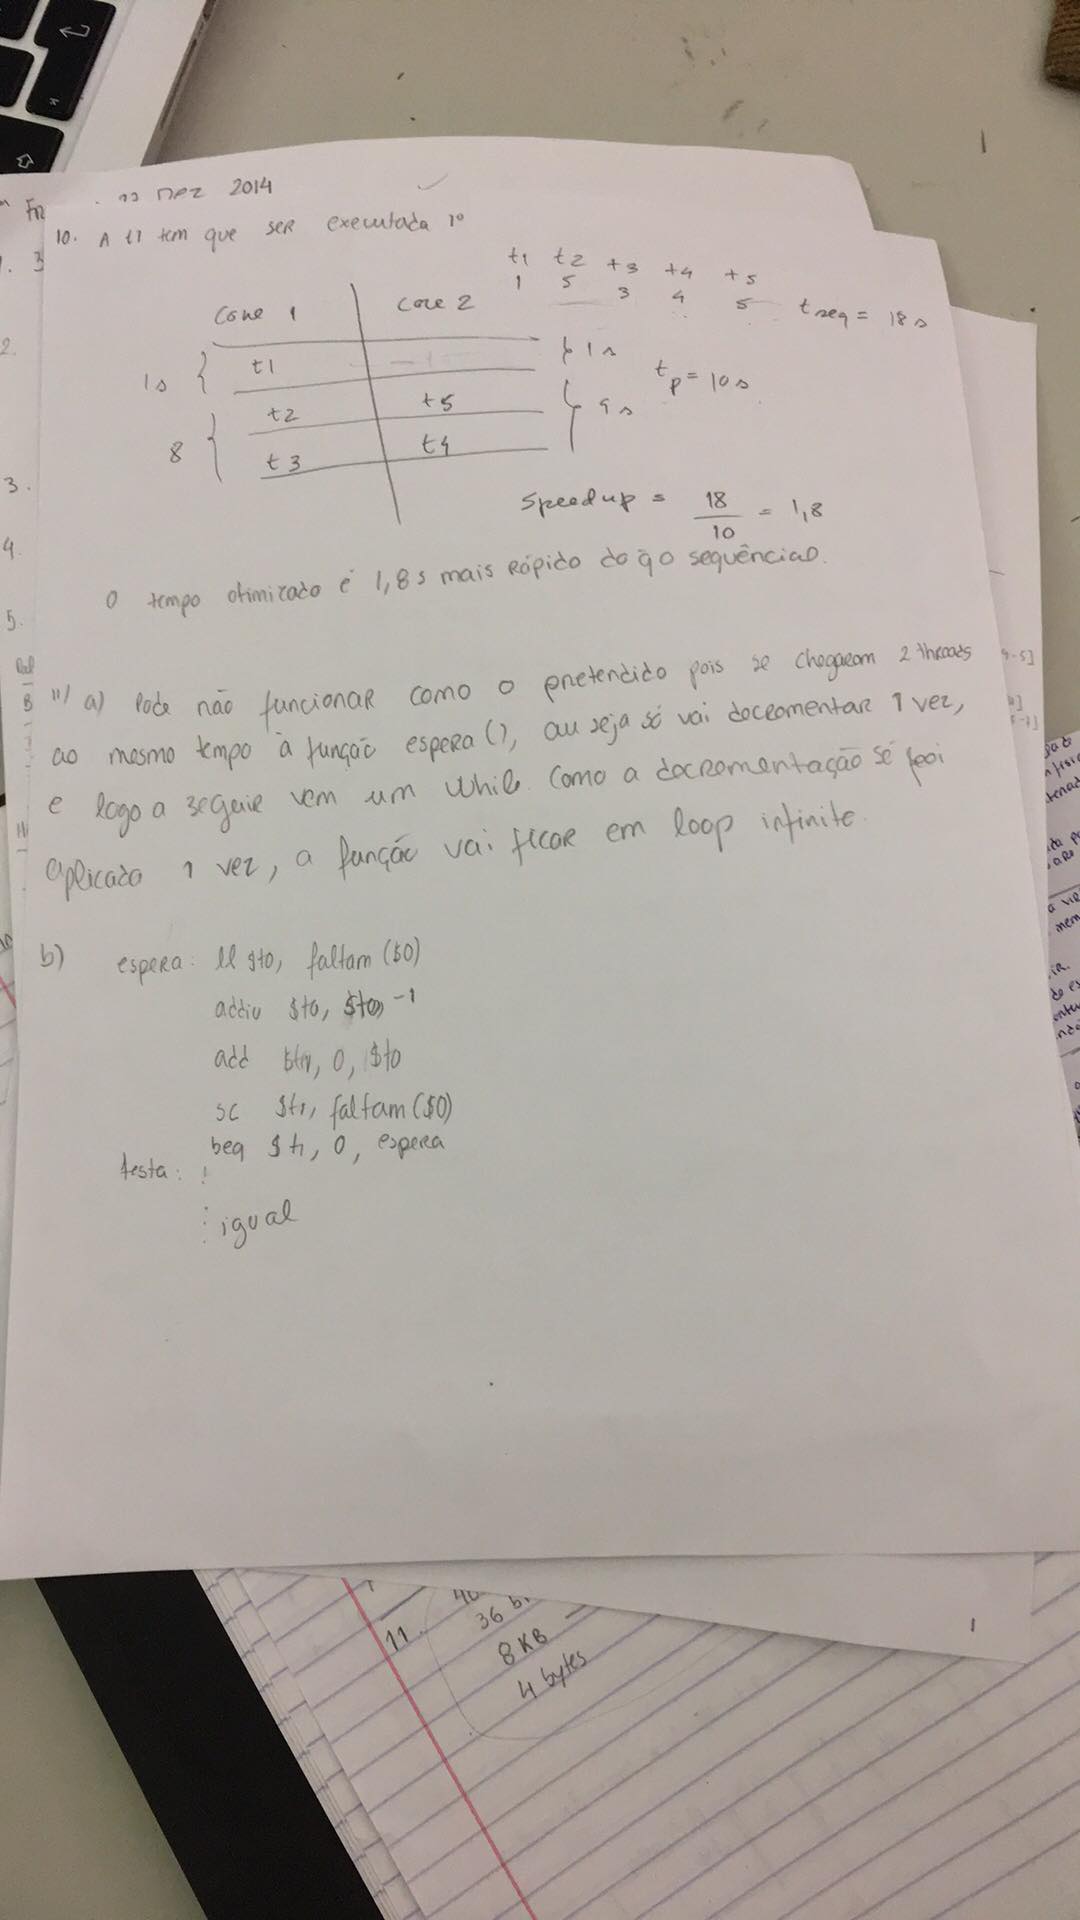 2014
10. A t1 tem que ser executada 1º
t1 t2 t3 t4 t5
1 5 3 4 5 tseq = 18s
Core 1 Core 2
1s t1 1s
tp = 10s
t2 t5 9s
8 t3 t4
Speedup = 18/10 = 1,8
O tempo otimizado é 1,8s mais rápido do qo sequêncial.
11/ a) Pode não funcionar como o pretendido pois se chegarem 2 threads
ao mesmo tempo à função espera(), ou seja só vai decrementar 1 vez,
e logo a seguir vem um while. Como a decrementação só foi
aplicada 1 vez, a função vai ficar em loop infinite.
b) espera: ll $t0, faltam($0)
addiu $t0, $t0, -1
add $t1, 0, $t0
sc $t1, faltam($0)
beq $t1, 0, espera
testa:
igual
2.
3.
4.
5.
11
36
8KB
4 bytes